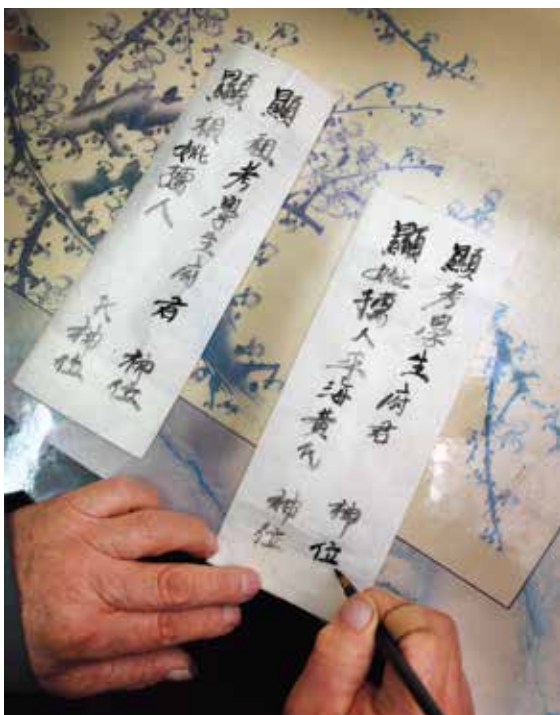 顯祖考學生府君 神位
顯祖妣孺人 氏神位
顯考學生府君 神位
顯妣孺人平海黃氏 神位